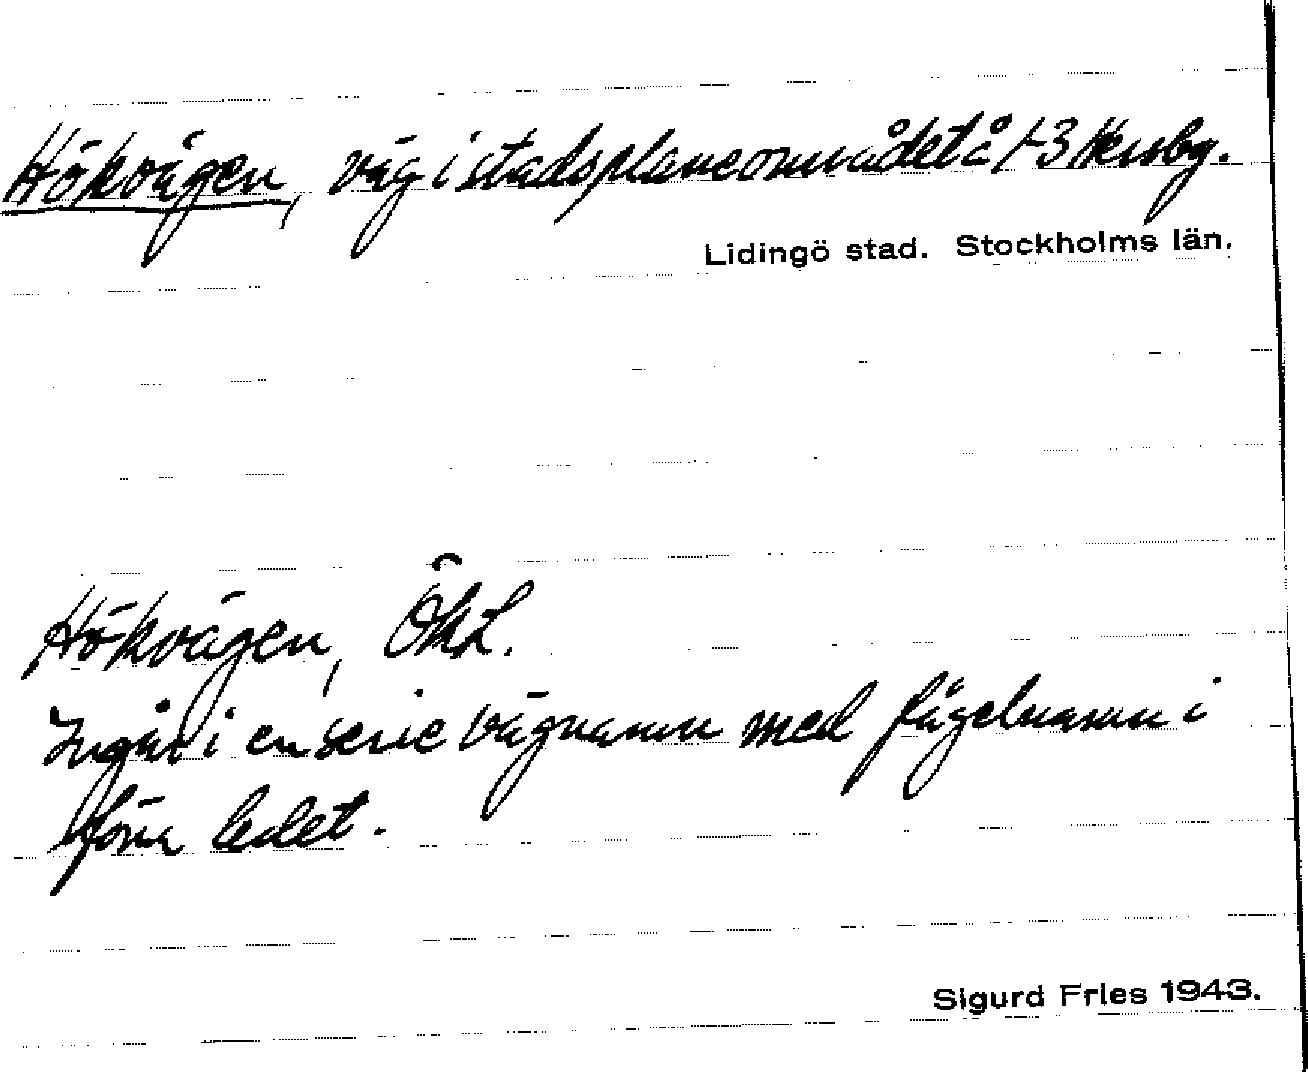 Hökvägen, väg i stadsplaneområdet å 1-3 Hersby.
Lidingö stad. Stockholms län.
Hökvägen, ÖkL.
Ingår i en serie vägnamn med fågelnamn i
förra ledet.
Sigurd Fries 1943.